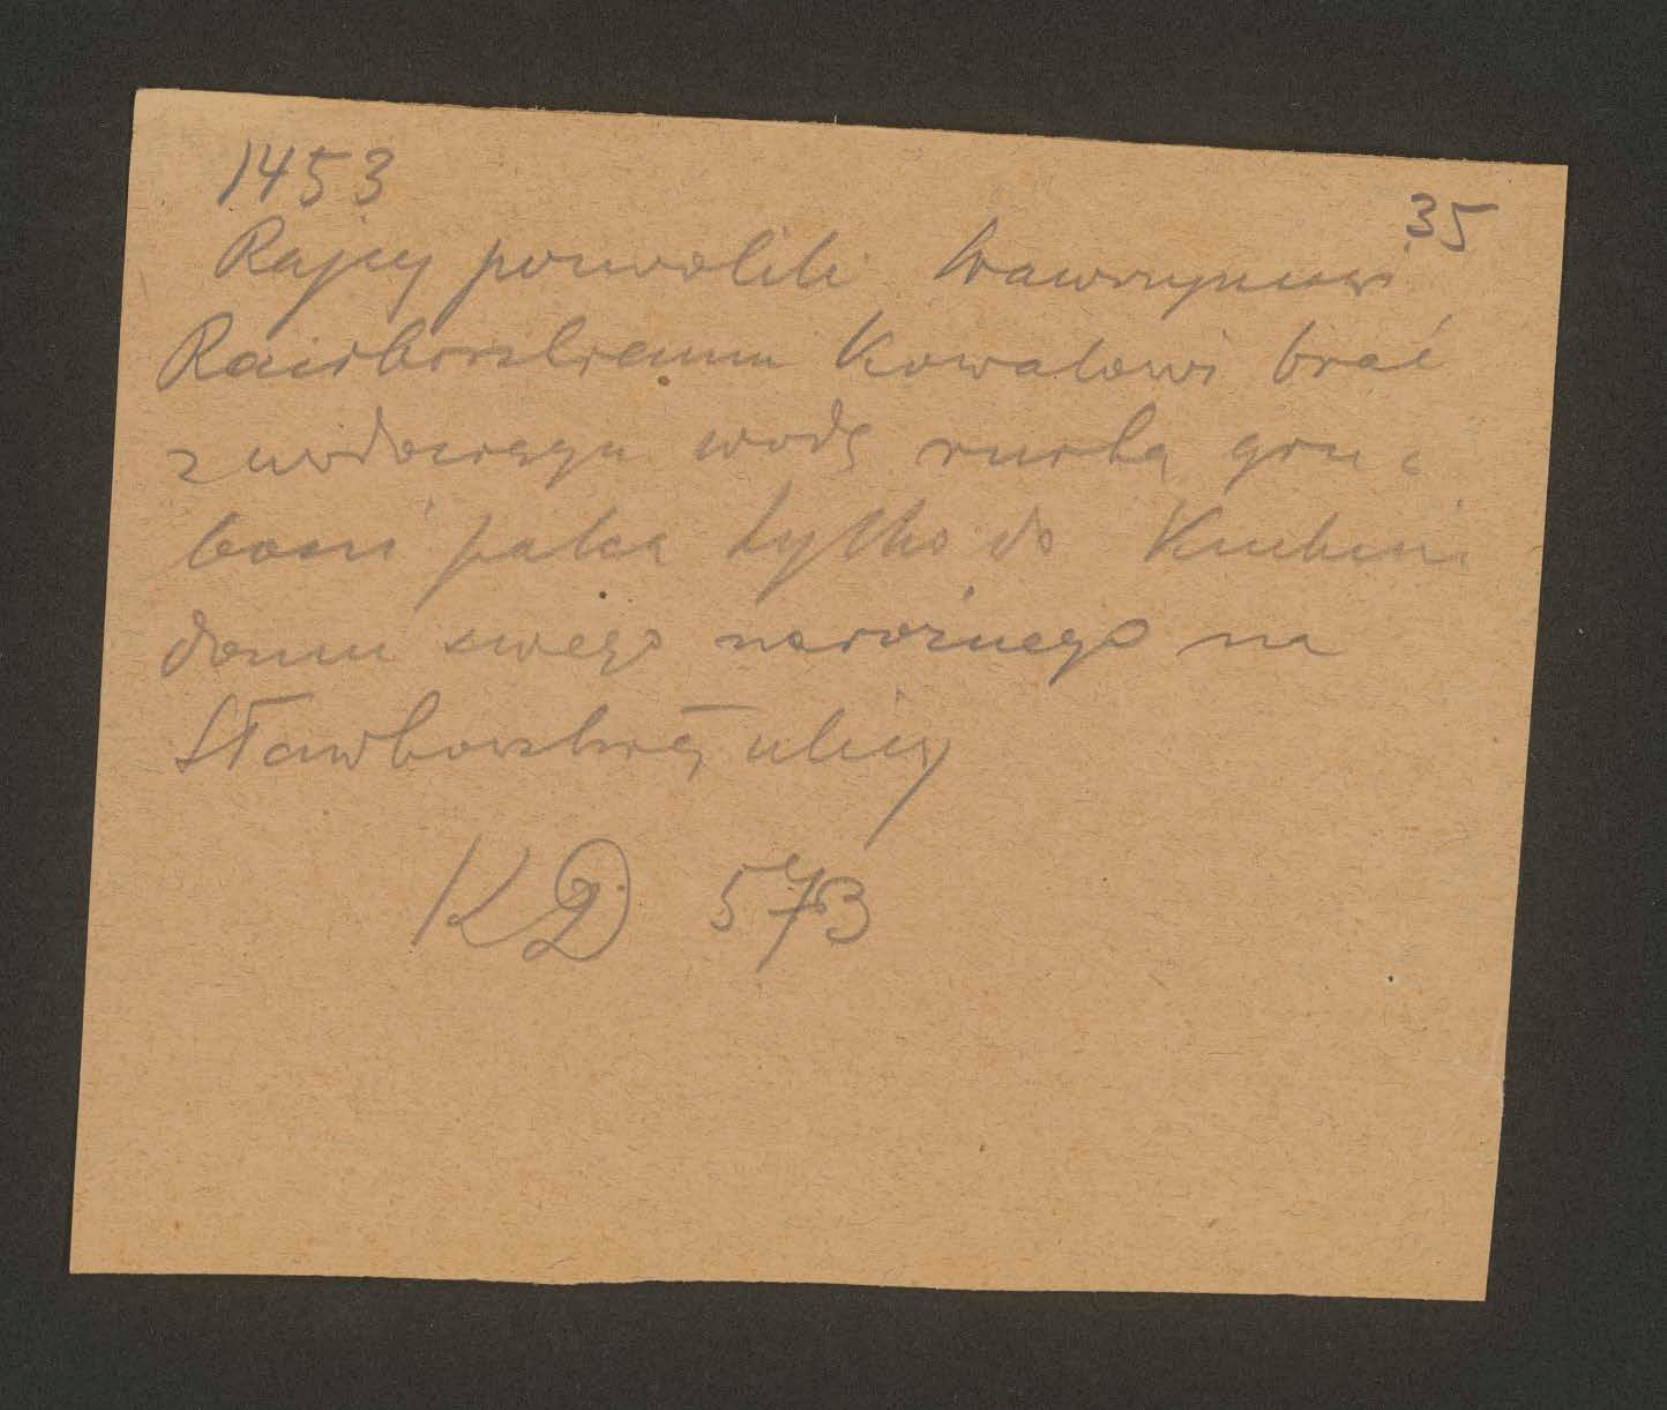 1453
35
Rajcy pozwolili Wawrzyńcowi
Raciborskiemu Kowalowi brać
z wodociągu wodę rurką gru
bości palca tylko do Kuchni
domu swego narożnego na
Sławkowskiej ulicy
KD 573